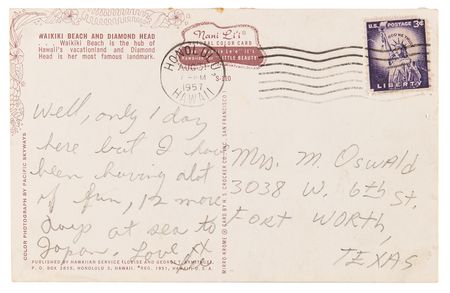 WAIKIKI BEACH AND DIAMOND HEAD
. . . Waikiki Beach is the hub of
Hawaii's vacationland and Diamond
Head is her most famous landmark.
Nani Li'i
NATURAL COLOR CARD
LITTLE BEAUTY
S-110
HONOLULU
1957
HAWAII
U.S. POSTAGE 3¢
IN GOD WE TRUST
LIBERTY
Well, only 1 day
here but I have
been having alot
of fun, 12 more
days at sea to
Japan. Love
Mrs. M. Oswald
3038 W. 6th St.
Fort Worth,
TEXAS
COLOR PHOTOGRAPH BY PACIFIC SKYWAYS
MIRRO KROME ® CARD BY H. S. CROCKER CO. INC. SAN FRANCISCO 1
PUBLISHED BY HAWAIIAN SERVICE (LOUISE AND GEORGE T.
P. O. BOX 2835, HONOLULU 3, HAWAII. REG. 1951, HAWAII, U. S. A.